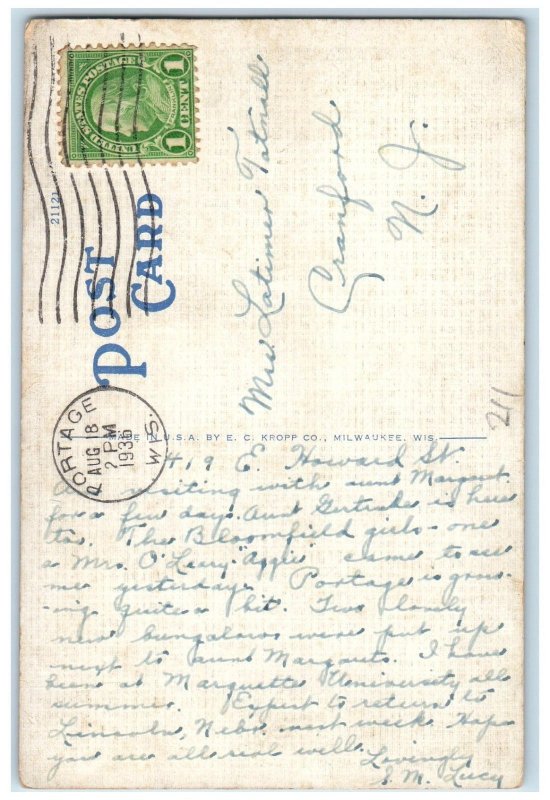 UNITED STATES POSTAGE
1 CENT 1
21121
POST
CARD
PORTAGE
AUG 18
2 PM
1936
WIS.
Mrs Latimer Tatnall
Cranford
N. J.
211
MADE IN U.S.A. BY E. C. KROPP CO., MILWAUKEE, WIS.
419 E. Howard St.
Am visiting with aunt Margaret
for a few days. Aunt Gertrude is here
to. The Bloomfield girls - one
a Mrs. O'Leary "Aggie" came to see
me yesterday. Portage is grow-
ing quite a bit. Two lovely
new bungalows were put up
next to aunt Margarets. I have
been at Marquette University all
summer. Expect to return to
Lincoln, Nebr. next week. Hope
you are all real well.
Lovingly
S. M. Lucy